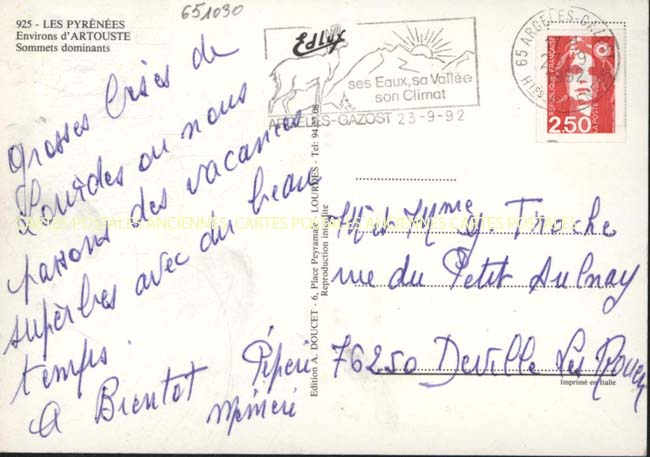 651030
925 - LES PYRÉNÉES
Environs d'ARTOUSTE
Sommets dominants
Edlyx
ses Eaux, sa Vallée
son Climat
ARGELES-GAZOST 23-9-92
65 ARGELES-GAZOST
RÉPUBLIQUE FRANÇAISE
LA POSTE
2,50
Grosses bises de
Lourdes ou nous
passons des vacances
superbes avec du beau
temps.
A Bientot Pépère
mémère
CARTES POSTALES ANCIENNES CARTES POSTALES ANCIENNES CARTES POSTALES
Edition A. DOUCET - 6, Place Peyramale - LOURDES - Tel: 94.27.08
Reproduction interdite
Mr et Mme Troche
rue du Petit Aulnay
76250 Deville Les Rouen
Imprimé en Italie